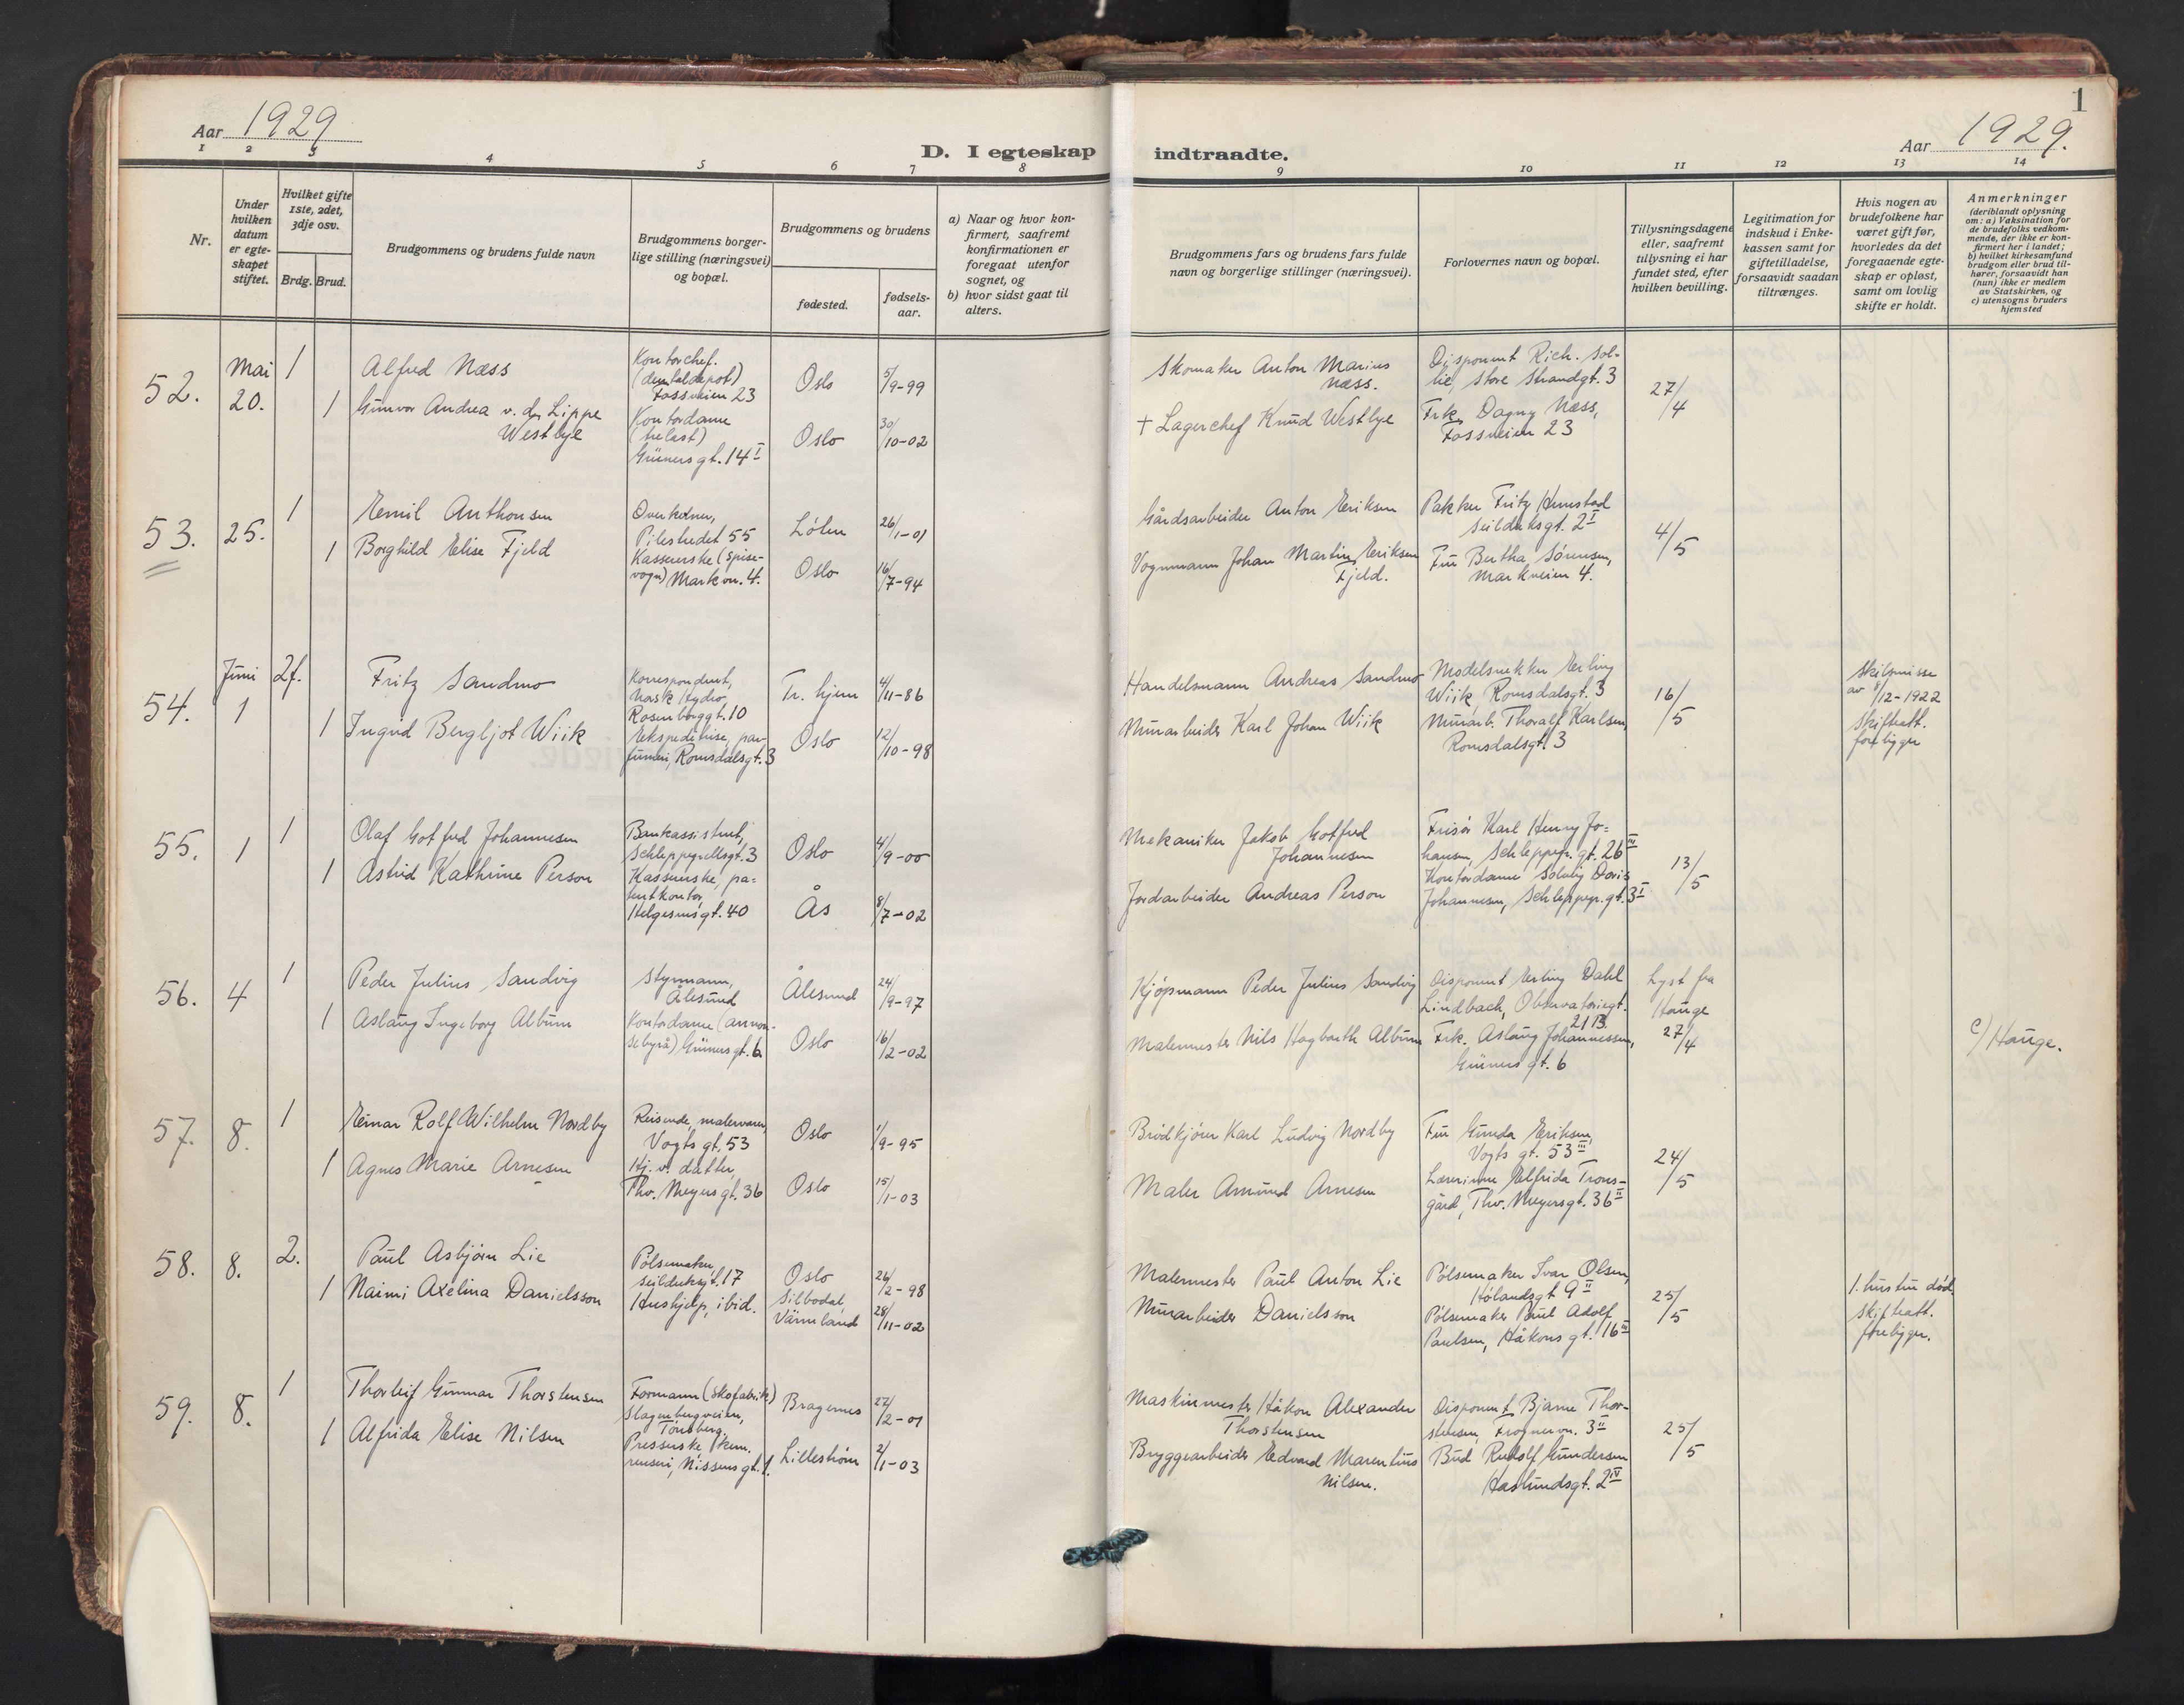 Aar 1929
D. I egteskap
1 2 3 4 5 6 7 8
Nr.
Under hvilken datum er egteskapet stiftet.
Hvilket gifte 1ste, 2det, 3dje osv.
Brdg. Brud.
Brudgommens og brudens fulde navn
Brudgommens borgerlige stilling (næringsvei) og bopæl.
Brudgommens og brudens
fødested.
fødselsaar.
a) Naar og hvor konfirmert, saafremt konfirmationen er foregaat utenfor sognet, og
b) hvor sidst gaat til alters.
52. Mai 20. 1
Alfred Næss
Kontorchef.
(dentaldepot)
Fossveien 23
Oslo
5/9-99
1 Gunvor Andrea v. der Lippe
Westbye
Kontordame
(trelast)
Grünersgt. 14 I
Oslo
30/10-02
53. 25. 1
Emil Anthonsen
Overkelner,
Pilestredet 55
Løten
26/1-01
1 Borghild Elise Fjeld
Kasserske (spise-
vogn) Markvn. 4.
Oslo
16/7-94
54. Juni 1 2f.
Fritz Sandmo
Korrespondent,
Norsk Hydro
Rosenborggt. 10
Tr.hjem
4/11-86
1 Ingrid Bergljot Wiik
Ekspeditrise, par-
fumeri, Romsdalsgt. 3
Oslo
12/10-98
55. 1 1
Olaf Gotfred Johannesen
Bankassistent,
Schleppegrellsgt. 3
Oslo
4/9-00
1 Astrid Kathrine Person
Kasserske, pa-
tentkontor,
Helgesensgt. 40
Ås
8/7-02
56. 4 1
Peder Julius Sandvig
Styrmann,
Ålesund
Ålesund
24/9-97
1 Aslaug Ingeborg Album
Kontordame (annon-
sebyrå) Grünersgt. 6
Oslo
16/2-02
57. 8. 1
Einar Rolf Wilhelm Nordby
Reisende, malervarer,
Vogts gt. 53
Oslo
1/9-95
1 Agnes Marie Arnesen
Hj.v. datter,
Thv. Meyers gt. 36
Oslo
15/1-03
58. 8. 2.
Paul Asbjørn Lie
Pølsemaker,
Seilduksgt. 17
Oslo
26/2-98
1 Naimi Axelina Danielsson
Hushjelp, ibid.
Silbodal,
Värmland
28/11-02
59. 8. 1
Thorleif Gunnar Thorstensen
Formann (skofabrik)
Slagenbergveien,
Tønsberg.
Bragernes
27/2-01
1 Alfrida Elise Nilsen
Presserske, kem.
renseri, Nissens gt. 1.
Lillestrøm
2/1-03
1
Aar 1929.
indtraadte.
9 10 11 12 13 14
Brudgommens fars og brudens fars fulde navn og borgerlige stillinger (næringsvei).
Forlovernes navn og bopæl.
Tillysningsdagene eller, saafremt tillysning ei har fundet sted, efter hvilken bevilling.
Legitimation for indskud i Enkekassen samt for giftetilladelse, forsaavidt saadan tiltrænges.
Hvis nogen av brudefolkene har været gift før, hvorledes da det foregaaende egteskap er opløst, samt om lovlig skifte er holdt.
Anmerkninger
(deriblandt oplysning om: a) Vaksination for de brudefolks vedkommende, der ikke er konfirmert her i landet;
b) hvilket kirkesamfund brudgom eller brud tilhører, forsaavidt han (hun) ikke er medlem av Statskirken, og
c) utensogns bruders hjemsted
Skomaker Anton Marius
Næss.
Disponent Rich. Sol-
lie, Store Strandgt. 3
27/4
+ Lagerchef Knud Westbye
Frk. Dagny Næss,
Fossveien 23
Gårdsarbeider Anton Eriksen
Pakker Fritz Hemstad
Seilduksgt. 2 I
4/5
Vognmann Johan Martin Eriksen
Fjeld.
Fru Bertha Sørensen,
Markveien 4.
Handelsmann Andreas Sandmo
Modelsnekker Erling
Wiik, Romsdalsgt. 3
16/5
Skilsmisse
av 8/2-1922
Skifteatt.
foreligger
Murarbeider Karl Johan Wiik
Murarb. Thoralf Karlsen,
Romsdalsgt. 3
Mekaniker Jakob Gotfred
Johannesen
Frisør Karl Henry Jo-
hansen, Schleppegr. gt. 26 III
13/5
Jordarbeider Andreas Person
Kontordame Solveig Doris
Johannesen, Schleppegr. gt. 3 I
Kjøpmann Peder Julius Sandvig
Disponent Erling Dahl
Lindbach, Observatoriegt.
21 B.
Lyst fra
Hauge
27/4
Malermester Nils Hagbarth Album
Frk. Aslaug Johannessen,
Grüners gt. 6
c) Hauge.
Brødkjører Karl Ludvig Nordby
Fru Gunda Eriksen,
Vogts gt. 53 III
24/5
Maler Amund Arnesen
Lærerinne Elfrida Trons-
gård, Thv. Meyersgt. 36 II
Malermester Paul Anton Lie
Pølsemaker Ivar Olsen,
Hølandsgt 9 II
25/5
1. hustru død,
skifteatt.
foreligger.
Murarbeider Danielsson
Pølsemaker Paul Adolf
Paulsen, Håkons gt. 16 III
Maskinmester Håkon Alexander
Thorstensen
Disponent Bjarne Thor-
stensen, Frognervn. 3 II
25/5
Bryggearbeider Edvard Marentius
Nilsen.
Bud Rudolf Gundersen
Haslundsgt. 2 IV